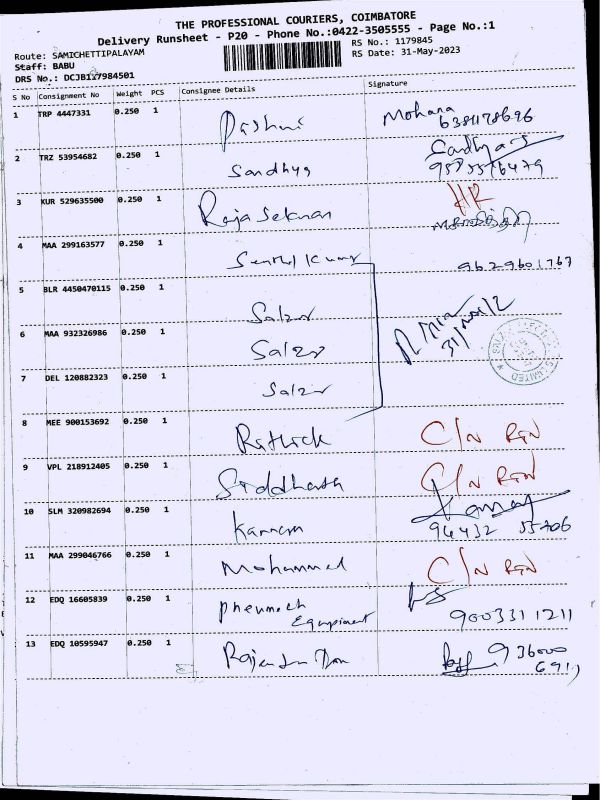 THE PROFESSIONAL COURIERS, COIMBATORE
Delivery Runsheet - P20 - Phone No.:0422-3505555 - Page No.:1
Route: SAMICHETTIPALAYAM
RS No.: 1179845
Staff: BABU
RS Date: 31-May-2023
DRS No.: DCJB117984501
S No Consignment No Weight PCS Consignee Details Signature
1 TRP 4447331 0.250 1 Mohana
6381178696
2 TRZ 53954682 0.250 1 Sandhya
3 KUR 529635500 0.250 1 Raja Sekaran
4 MAA 299163577 0.250 1 Senthil Kumar 9629601767
5 BLR 4450470115 0.250 1 Salzer
6 MAA 932326986 0.250 1 Salzer
7 DEL 120882323 0.250 1 Salzer
8 MEE 900153692 0.250 1 Rithick C/N RTN
9 VPL 218912405 0.250 1 Siddharth C/N RTN
10 SLM 320982694 0.250 1 Kannan 94432 55706
11 MAA 299046766 0.250 1 Mohammed C/N RTN
12 EDQ 16605839 0.250 1 Equipment 9003311211
13 EDQ 10595947 0.250 1 936000